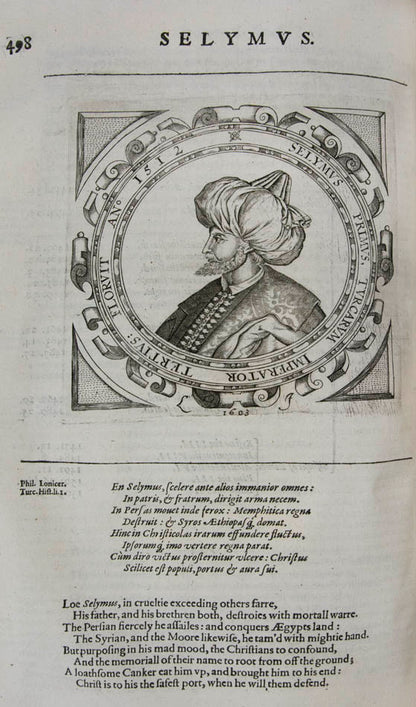 498
SELYMVS.
SELYMVS PRIMVS TVRCARVM IMPERATOR TERTIVS: FLORVIT AN° 1512
L I
1603
Phil. Lonicer.
Turc. Hist. li. 1.
En Selymus, ſcelere ante alios immanior omnes:
In patris, & fratrum, dirigit arma necem.
In Perſas mouet inde ferox: Memphitica regna
Deſtruit: & Syros Æthiopaſq́, domat.
Hinc in Chriſticolas irarum effundere fluctus,
Ipſorumq́, imo vertere regna parat.
Cùm diro victus proſternitur vlcere: Chriſtus
Scilicet eſt populi, portus & aura ſui.
Loe Selymus, in crueltie exceeding others farre,
His father, and his brethren both, deſtroies with mortall warre.
The Perſian fiercely he aſſailes: and conquers Ægypts land:
The Syrian, and the Moore likewiſe, he tam'd with mightie hand.
But purpoſing in his mad mood, the Chriſtians to confound,
And the memoriall of their name to root from off the ground;
A loathſome Canker eat him vp, and brought him to his end:
Chriſt is to his the ſafeſt port, when he will them defend.